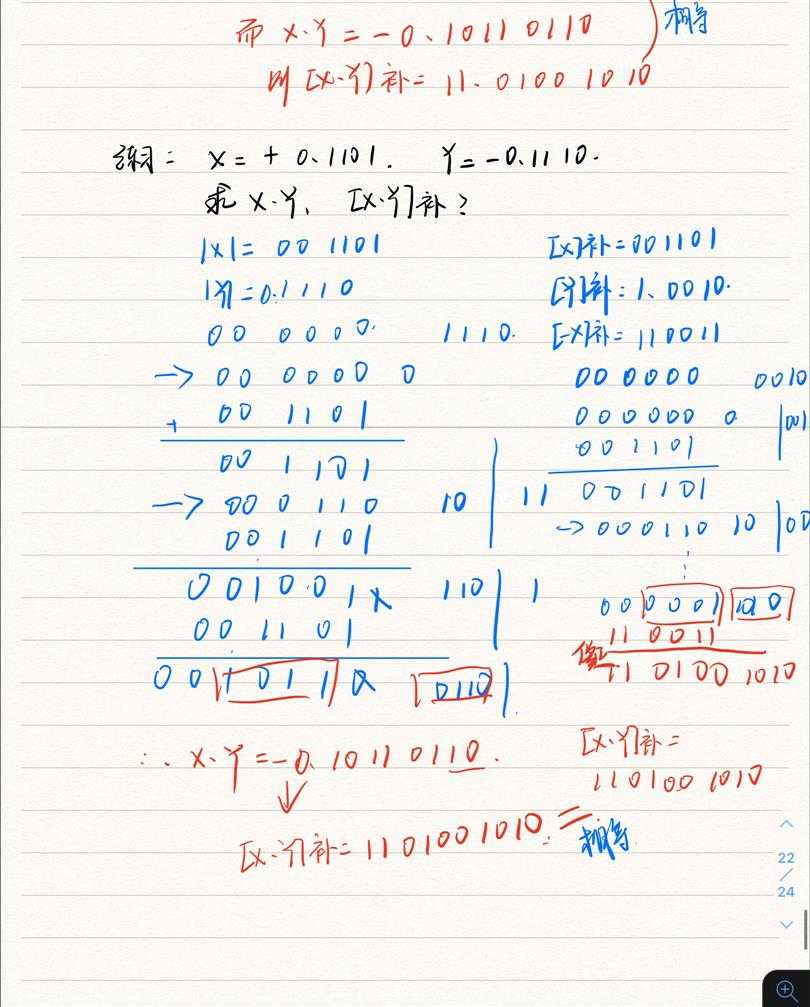 而 X·Y = -0.10110110
则 [X·Y]补 = 11.01001010
相等
练习: X = +0.1101. Y = -0.1110.
求 X·Y、 [X·Y]补?
|X| = 00 1101
|Y| = 0.1110
00 0000. 1110.
→ 00 0000 0
+ 00 1101
00 1101
→ 00 0110 10
00 1101
00100.1 110 1
00 1101
00 1011 0110
∴ X·Y = -0.10110110.
↓
[X·Y]补 = 1101001010. = 相等.
[X]补 = 001101
[Y]补 = 1.0010.
[-X]补 = 110011
000000 0010
000000 0 |001
001101
11 001101
→ 000110 10 |00
⋮
00 0001 1010
11 0011
11 0100 1010
[X·Y]补 =
110100 1010
22
/
24